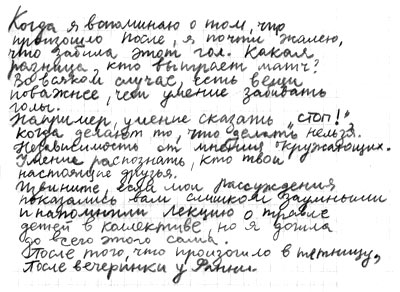 Когда я вспоминаю о том, что
произошло после, я почти жалею,
что забила этот гол. Какая
разница, кто выиграет матч?
Во всяком случае, есть вещи
поважнее, чем умение забивать
голы.
Например, умение сказать „стоп!"
когда делают то, что делать нельзя.
Независимость от мнения окружающих.
Умение распознать, кто твои
настоящие друзья.
Извините, если мои рассуждения
показались вам слишком заумными
и напомнили лекцию о травле
детей в коллективе, но я дошла
до всего этого сама.
После того, что произошло в пятницу,
после вечеринки у Фанни.